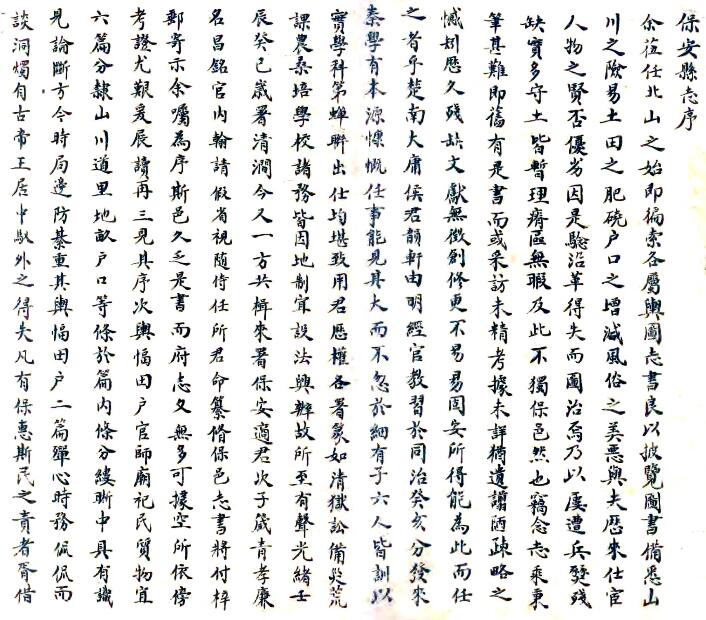 保安縣志序
余蒞任北山之始即徧索各屬輿圖志書良以披覽圖書備悉山
川之險易土田之肥磽户口之增減風俗之美惡與夫歷來仕宦
人物之賢否優劣因是騐沿革得失而圖治焉乃以屢遭兵燹殘
缺實多守土皆暫理瘠區無暇及此不獨保邑然也竊念志乘東
筆甚難即舊有是書而或采訪未精考據未詳猶遺譾陋疎略之
憾矧歷久殘缺文獻無徵創修更不易易固安所得能為此而任
之者乎楚南大庸侯君韻軒由明經官教習於同治癸亥分發來
秦學有本源慷慨任事能見其大而不忽於細有子六人皆訓以
實學科第蟬聯出仕均堪致用君歷權各署篆如清獄訟備災荒
課農桑培學校諸務皆因地制宜設法興辦故所至有聲光緒壬
辰癸巳歲署清澗今又一方共楫來署保安適君次子箴青孝廉
名昌銘官内翰請假省視随侍任所君命纂脩保邑志書將付梓
郵寄示余囑為序斯邑久乏是書而府志又無多可據空所依傍
考證尤艱爰展讀再三見其序次輿幅田户官師廟祀民賢物宜
六篇分隸山川道里地畝户口等條於篇内條分縷晰中具有識
見論斷方今時局邊防綦重其輿幅田户二篇殫心時務侃侃而
談洞燭自古帝王居中馭外之得失凡有保惠斯民之責者胥借